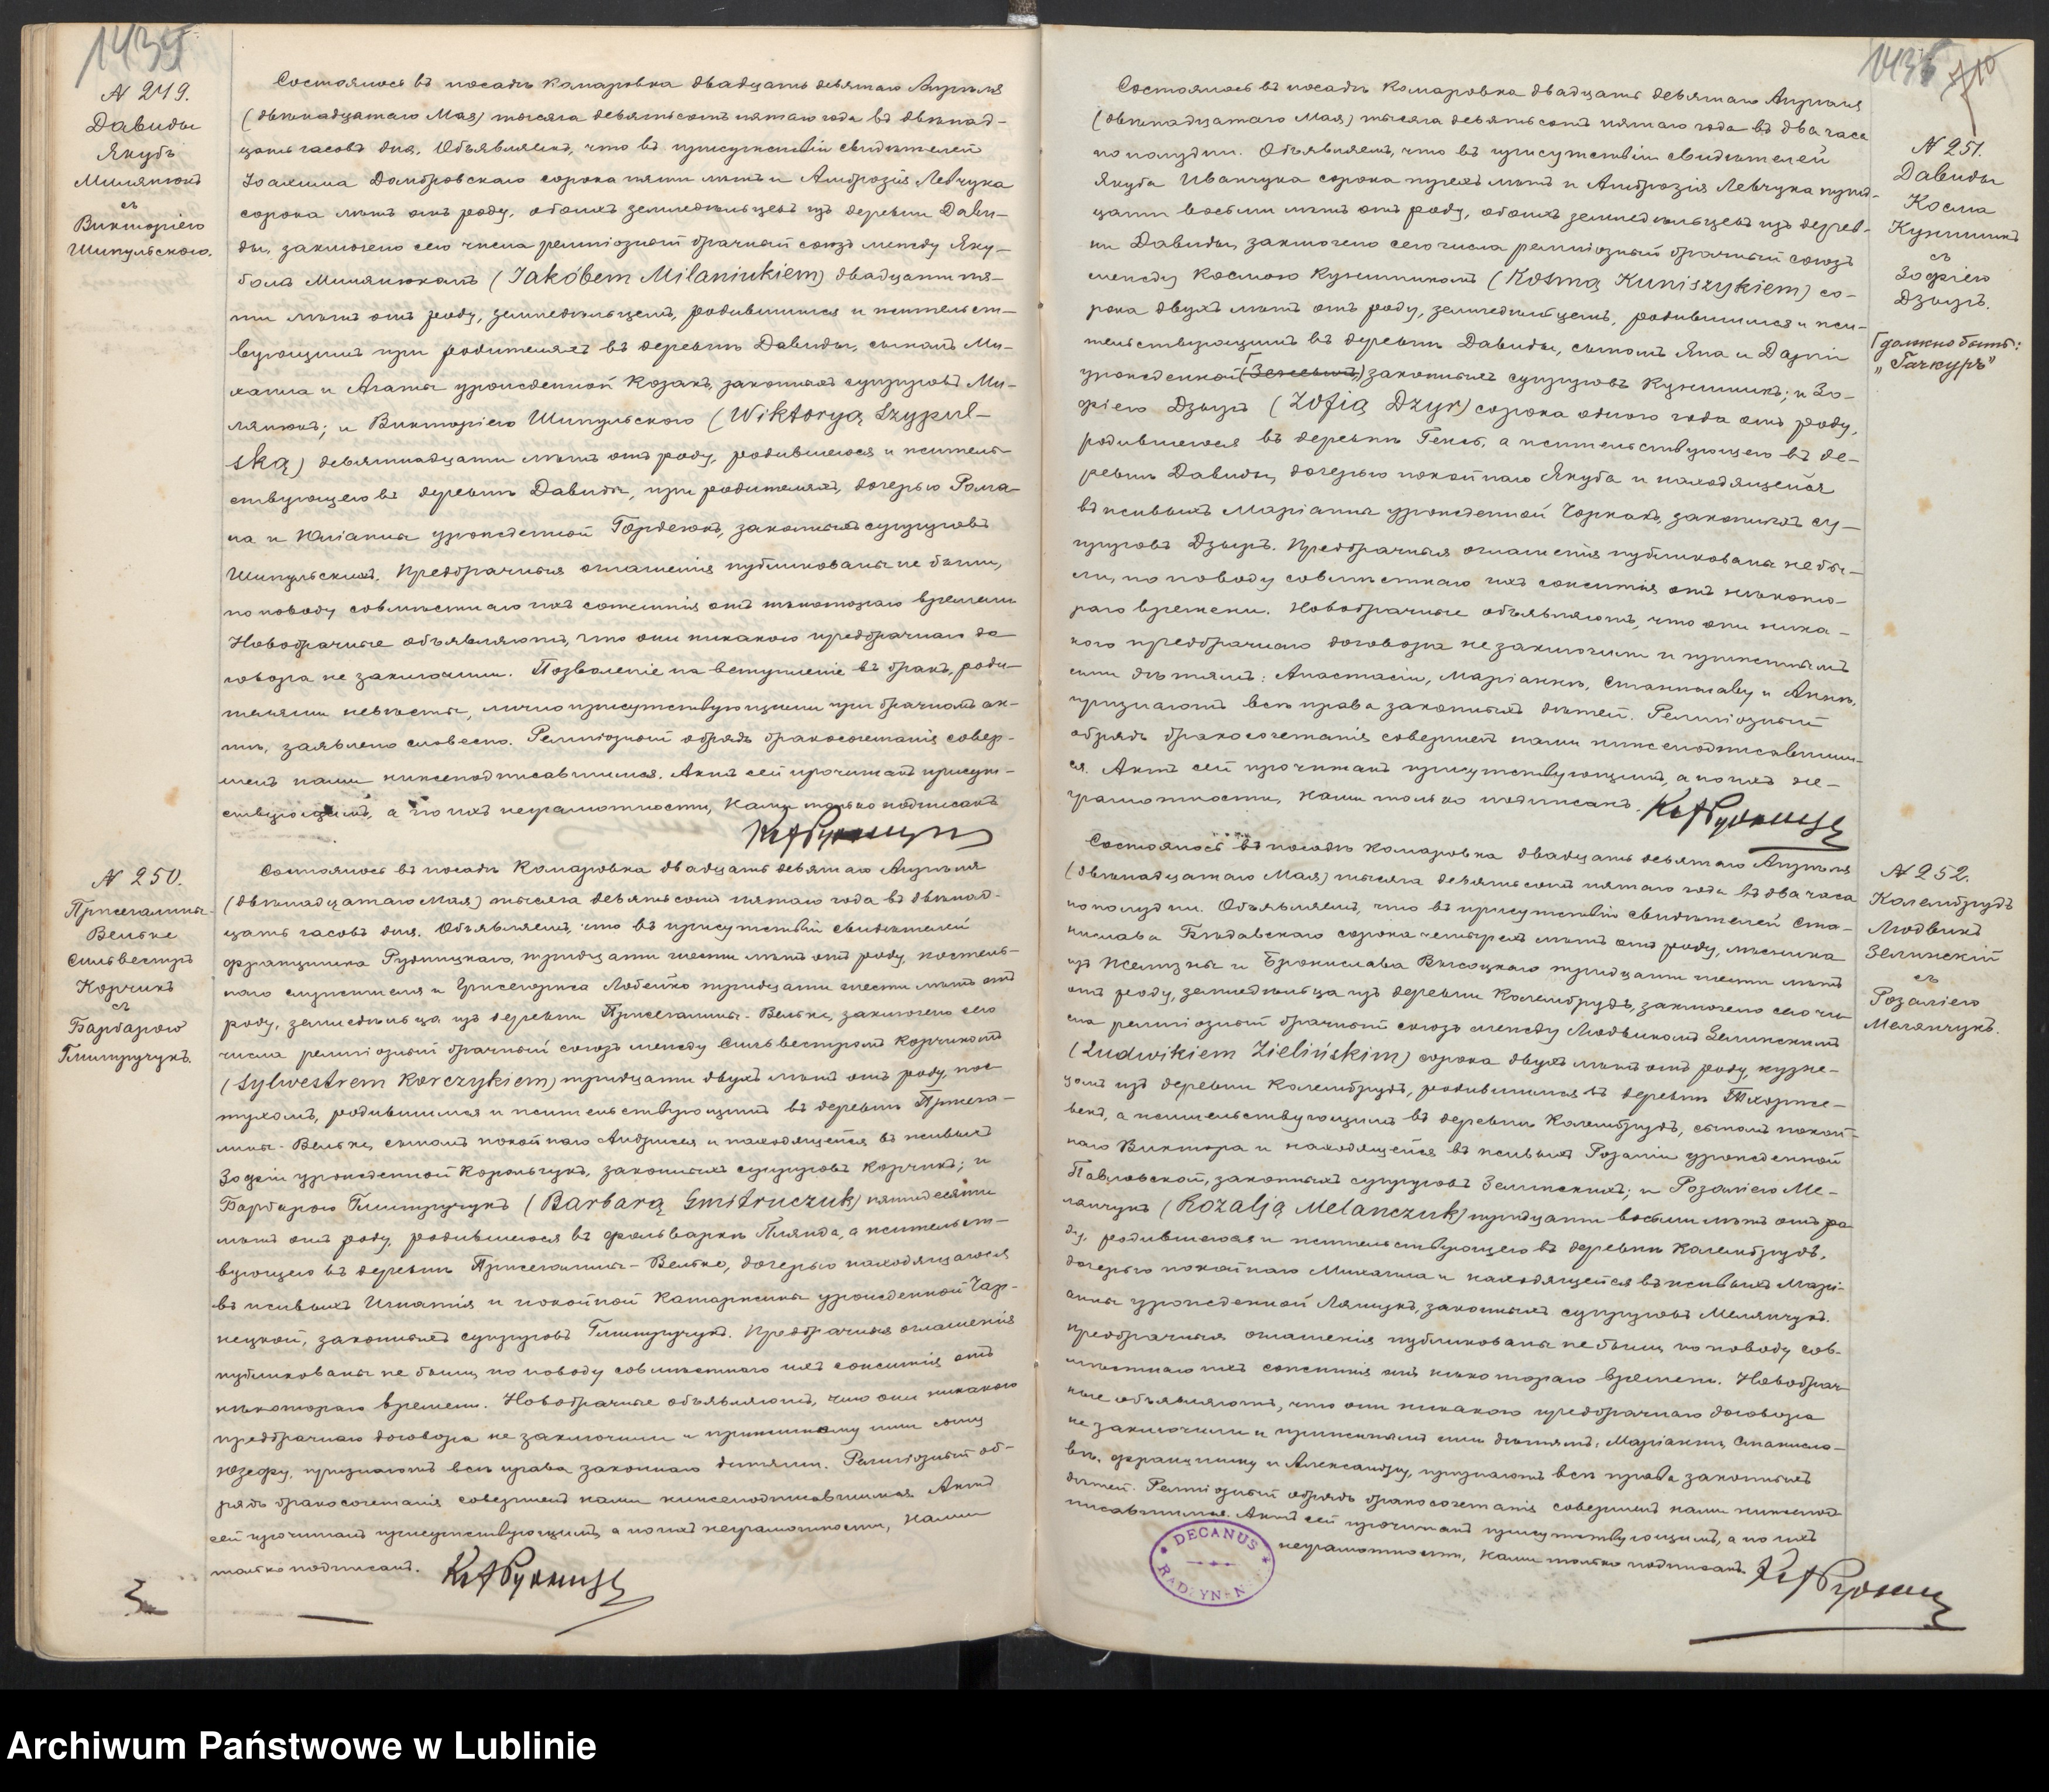 1434
N 249.
Давиды
Якубъ
Милянюкъ
съ
Викторіею
Шипульскою.
Состоялось въ посадѣ Комаровка двадцать девятаго Апрѣля
(двѣнадцатаго Мая) тысяча девятьсотъ пятаго года въ двѣнад-
цать часовъ дня. Объявляемъ, что въ присутствіи свидѣтелей
Іоахима Домбровскаго сорока пяти лѣтъ и Амброзія Левчука
сорока лѣтъ отъ роду, обоихъ земледѣльцевъ изъ деревни Дави-
ды, заключенъ сего числа религіозный брачный союзъ между Яку-
бомъ Милянюкомъ (Jakóbem Milaniukiem) двадцати пя-
ти лѣтъ отъ роду, земледѣльцемъ, родившимся и жительст-
вующимъ при родителяхъ въ деревнѣ Давиды, сыномъ Ми-
хаила и Агаты урожденной Козакъ, законныхъ супруговъ Ми-
лянюкъ; и Викторіею Шипульскою (Wiktoryą Szypul-
ską) девятнадцати лѣтъ отъ роду, родившеюся и житель-
ствующею въ деревнѣ Давиды, при родителяхъ, дочерью Рома-
на и Юліанны урожденной Гордеюкъ, законныхъ супруговъ
Шипульскихъ. Предбрачныя оглашенія публикованы не были,
по поводу совмѣстнаго ихъ сожитія отъ нѣкотораго времени
Новобрачные объявляютъ, что они никакого предбрачнаго до
говора не заключили. Позволеніе на вступленіе въ бракъ, роди-
телями невѣсты, лично присутствующими при брачномъ ак-
тѣ, заявлено словесно. Религіозный обрядъ бракосочетанія совер-
шенъ нами нижеподписавшимся. Актъ сей прочитанъ присут-
ствующимъ, а по ихъ неграмотности, Нами только подписанъ
N 250.
Пржегалины-
Вельке
Сильвестръ
Корчикъ
съ
Барбарою
Гмитручукъ.
Состоялось въ посадѣ Комаровка двадцать девятаго Апрѣля
(двѣнадцатаго Мая) тысяча девятьсотъ пятаго года въ двѣнад-
цать часовъ дня. Объявляемъ, что въ присутствіи свидѣтелей
Францишка Рудницкаго, тридцати шести лѣтъ отъ роду, костель-
наго служителя и Гржегоржа Лобейко тридцати шести лѣтъ отъ
роду, земледѣльца изъ деревни Пржегалины-Вельке, заключенъ сего
числа религіозный брачный союзъ между Сильвестромъ Корчикомъ
(Sylwestrem Korczykiem) тридцати двухъ лѣтъ отъ роду, пас
тухомъ, родившимся и жительствующимъ въ деревнѣ Пржега-
лины-Вельке, сыномъ покойнаго Андржея и находящейся въ живыхъ
Зофіи урожденной Корольчукъ, законныхъ супруговъ Корчикъ; и
Барбарою Гмитручукъ (Barbarą Gmitruczuk) пятидесяти
лѣтъ отъ роду, родившеюся въ фольваркѣ Плянда, а жительст-
вующею въ деревнѣ Пржегалины-Вельке, дочерью находящагося
въ живыхъ Игнатія и покойной Катаржины урожденной Чар-
нецкой, законныхъ супруговъ Гмитручукъ. Предбрачныя оглашенія
публикованы не были, по поводу совмѣстнаго ихъ сожитія отъ
нѣкотораго времени. Новобрачные объявляютъ, что они никакого
предбрачнаго договора не заключили и прижитому ими сыну
Юзефу, признаютъ всѣ права законнаго дитяти. Религіозный об-
рядъ бракосочетанія совершенъ нами нижеподписавшимся. Актъ
сей прочитанъ присутствующимъ, а по ихъ неграмотности, Нами
только подписанъ.
1435
N 251.
Давиды
Косма
Кунишикъ
съ
Зофіею
Дзыръ.
[должно быть:
„Гачкуръ”
Состоялось въ посадѣ Комаровка двадцать девятаго Апрѣля
(двѣнадцатаго Мая) тысяча девятьсотъ пятаго года въ два часа
по полудни. Объявляемъ, что въ присутствіи свидѣтелей
Якуба Иванчука сорока трехъ лѣтъ и Амброзія Левчука трид-
цати восьми лѣтъ отъ роду, обоихъ земледѣльцевъ изъ дерев-
ни Давиды, заключенъ сего числа религіозный брачный союзъ
между Космою Кунишикомъ (Kosmą Kuniszykiem) со-
рока двухъ лѣтъ отъ роду, земледѣльцемъ, родившимся и жи-
тельствующимъ въ деревнѣ Давиды, сыномъ Яна и Даріи
урожденной законныхъ супруговъ Кунишикъ; и Зо-
фіею Дзыръ (Zofią Dzyr) сорока одного года отъ роду,
родившеюся въ деревнѣ Генсь, а жительствующею въ де-
ревнѣ Давиды, дочерью покойнаго Якуба и находящейся
въ живыхъ Маріанны урожденной Чорнакъ, законныхъ су-
пруговъ Дзыръ. Предбрачныя оглашенія публикованы не бы-
ли, по поводу совмѣстнаго ихъ сожитія отъ нѣкото-
раго времени. Новобрачные объявляютъ, что они ника-
кого предбрачнаго договора не заключили и прижитымъ
ими дѣтямъ: Анастасіи, Маріаннѣ, Станиславу и Аннѣ,
признаютъ всѣ права законныхъ дѣтей. Религіозный
обрядъ бракосочетанія совершенъ нами нижеподписавшим-
ся. Актъ сей прочитанъ присутствующимъ, а по ихъ не-
грамотности, Нами только подписанъ.
N 252.
Колембрудъ
Людвикъ
Зелинскій
съ
Розаліею
Мелянчукъ.
Состоялось въ посадѣ Комаровка двадцать девятаго Апрѣля
(двѣнадцатаго Мая) тысяча девятьсотъ пятаго года въ два часа
по полудни. Объявляемъ, что въ присутствіи свидѣтелей Ста-
нислава сорока четырехъ лѣтъ отъ роду, лѣсника
изъ Желизны и Бронислава Высоцкаго тридцати шести лѣтъ
отъ роду, земледѣльца изъ деревни Колембрудъ, заключенъ сего чи-
сла религіозный брачный союзъ между Людвикомъ Зелинскимъ
(Ludwikiem Zielińskim) сорока двухъ лѣтъ отъ роду, кузне-
цомъ изъ деревни Колембрудъ, родившимся въ деревнѣ Тхорже-
векъ, а жительствующимъ въ деревнѣ Колембрудъ, сыномъ покой-
наго Виктора и находящейся въ живыхъ Розаліи урожденной
Павловской, законныхъ супруговъ Зелинскихъ; и Розаліею Ме-
лянчукъ (Rozalją Melanczuk) тридцати восьми лѣтъ отъ ро
ду, родившеюся и жительствующею въ деревнѣ Колембрудъ,
дочерью покойнаго Михаила и находящейся въ живыхъ Марі-
анны урожденной Ляшукъ, законныхъ супруговъ Мелянчукъ.
Предбрачныя оглашенія публикованы не были, по поводу сов-
мѣстнаго ихъ сожитія отъ нѣкотораго времени. Новобрач-
ные объявляютъ, что они никакого предбрачнаго договора
не заключили и прижитымъ ими дѣтямъ: Маріаннѣ, Станисла-
вѣ, Францишку и Александру, признаютъ всѣ права законныхъ
дѣтей. Религіозный обрядъ бракосочетанія совершенъ нами нижепод-
писавшимся. Актъ сей прочитанъ присутствующимъ, а по ихъ
неграмотности, Нами только подписанъ.
DECANUS
Archiwum Państwowe w Lublinie